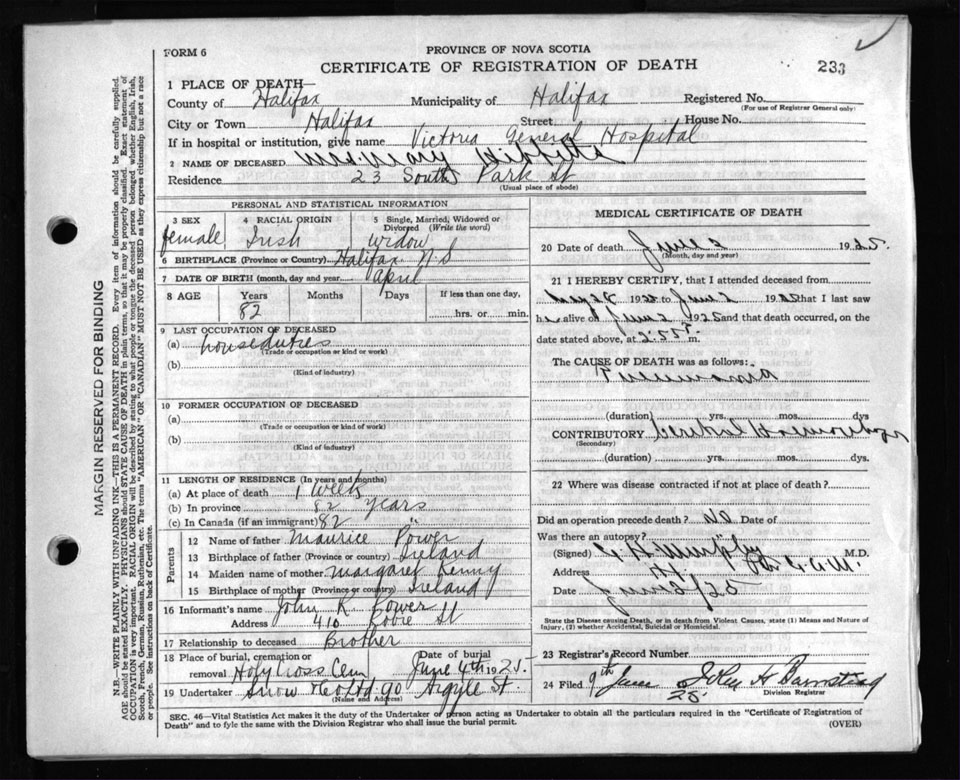 FORM 6
PROVINCE OF NOVA SCOTIA
CERTIFICATE OF REGISTRATION OF DEATH
233
1 PLACE OF DEATH—
County of Halifax Municipality of Halifax Registered No.
(For use of Registrar General only)
City or Town Halifax Street House No.
If in hospital or institution, give name Victoria General Hospital
2 NAME OF DECEASED Mrs. Mary
Residence 23 South Park St
(Usual place of abode)
PERSONAL AND STATISTICAL INFORMATION
3 SEX
female
4 RACIAL ORIGIN
Irish
5 Single, Married, Widowed or Divorced (Write the word)
widow
6 BIRTHPLACE (Province or Country) Halifax N.S
7 DATE OF BIRTH (month, day and year) April
8 AGE Years Months Days If less than one day,
82 hrs. or min.
9 LAST OCCUPATION OF DECEASED
(a) house duties
(Trade or occupation or kind or work)
(b)
(Kind of industry)
10 FORMER OCCUPATION OF DECEASED
(a)
(Trade or occupation or kind or work)
(b)
(Kind of industry)
11 LENGTH OF RESIDENCE (In years and months)
(a) At place of death 1 Week
(b) In province 82 years
(c) In Canada (if an immigrant) 82
Parents
12 Name of father Maurice Power
13 Birthplace of father (Province or country) Ireland
14 Maiden name of mother Margaret Kenny
15 Birthplace of mother (Province or country) Ireland
16 Informant's name John R. Power
Address 410 Robie St
17 Relationship to deceased Brother
18 Place of burial, cremation or removal Holy Cross Cem Date of burial June 4th 1925.
19 Undertaker Snow & Co Ltd 90 Argyle St.
(Name and Address)
MEDICAL CERTIFICATE OF DEATH
20 Date of death June 2 1925.
(Month, day and year)
21 I HEREBY CERTIFY, that I attended deceased from
May 28 1925 to June 2 1925 that I last saw
h alive on June 2 1925 and that death occurred, on the
date stated above, at m.
The CAUSE OF DEATH was as follows:
Pneumonia
(duration) yrs. mos. dys
CONTRIBUTORY Cerebral Haemorrhage
(Secondary)
(duration) yrs. mos. dys.
22 Where was disease contracted if not at place of death?
Did an operation precede death? No Date of
Was there an autopsy?
(Signed) Murphy M.D.
Address
Date June 2/25
State the Disease causing Death, or in death from Violent Causes, state (1) Means and Nature of Injury, (2) whether Accidental, Suicidal or Homicidal.
23 Registrar's Record Number
24 Filed 9th June 25
Division Registrar
SEC. 46—Vital Statistics Act makes it the duty of the Undertaker or person acting as Undertaker to obtain all the particulars required in the "Certificate of Registration of
Death" and to fyle the same with the Division Registrar who shall issue the burial permit.
(OVER)
MARGIN RESERVED FOR BINDING
N.B.—WRITE PLAINLY WITH UNFADING INK—THIS IS A PERMANENT RECORD. Every item of information should be carefully supplied.
AGE should be stated EXACTLY. PHYSICIANS should STATE CAUSE OF DEATH in plain terms, so that it may be properly classified. Exact statement of
OCCUPATION is very important. RACIAL ORIGIN will be described by stating to what people or tongue the deceased person belonged whether English, Irish,
Scotch, French, German, Russian, Ruthenian, etc. The terms "AMERICAN" OR "CANADIAN" MUST NOT BE USED as they express citizenship but not a race
or people. See instructions on back of Certificate.